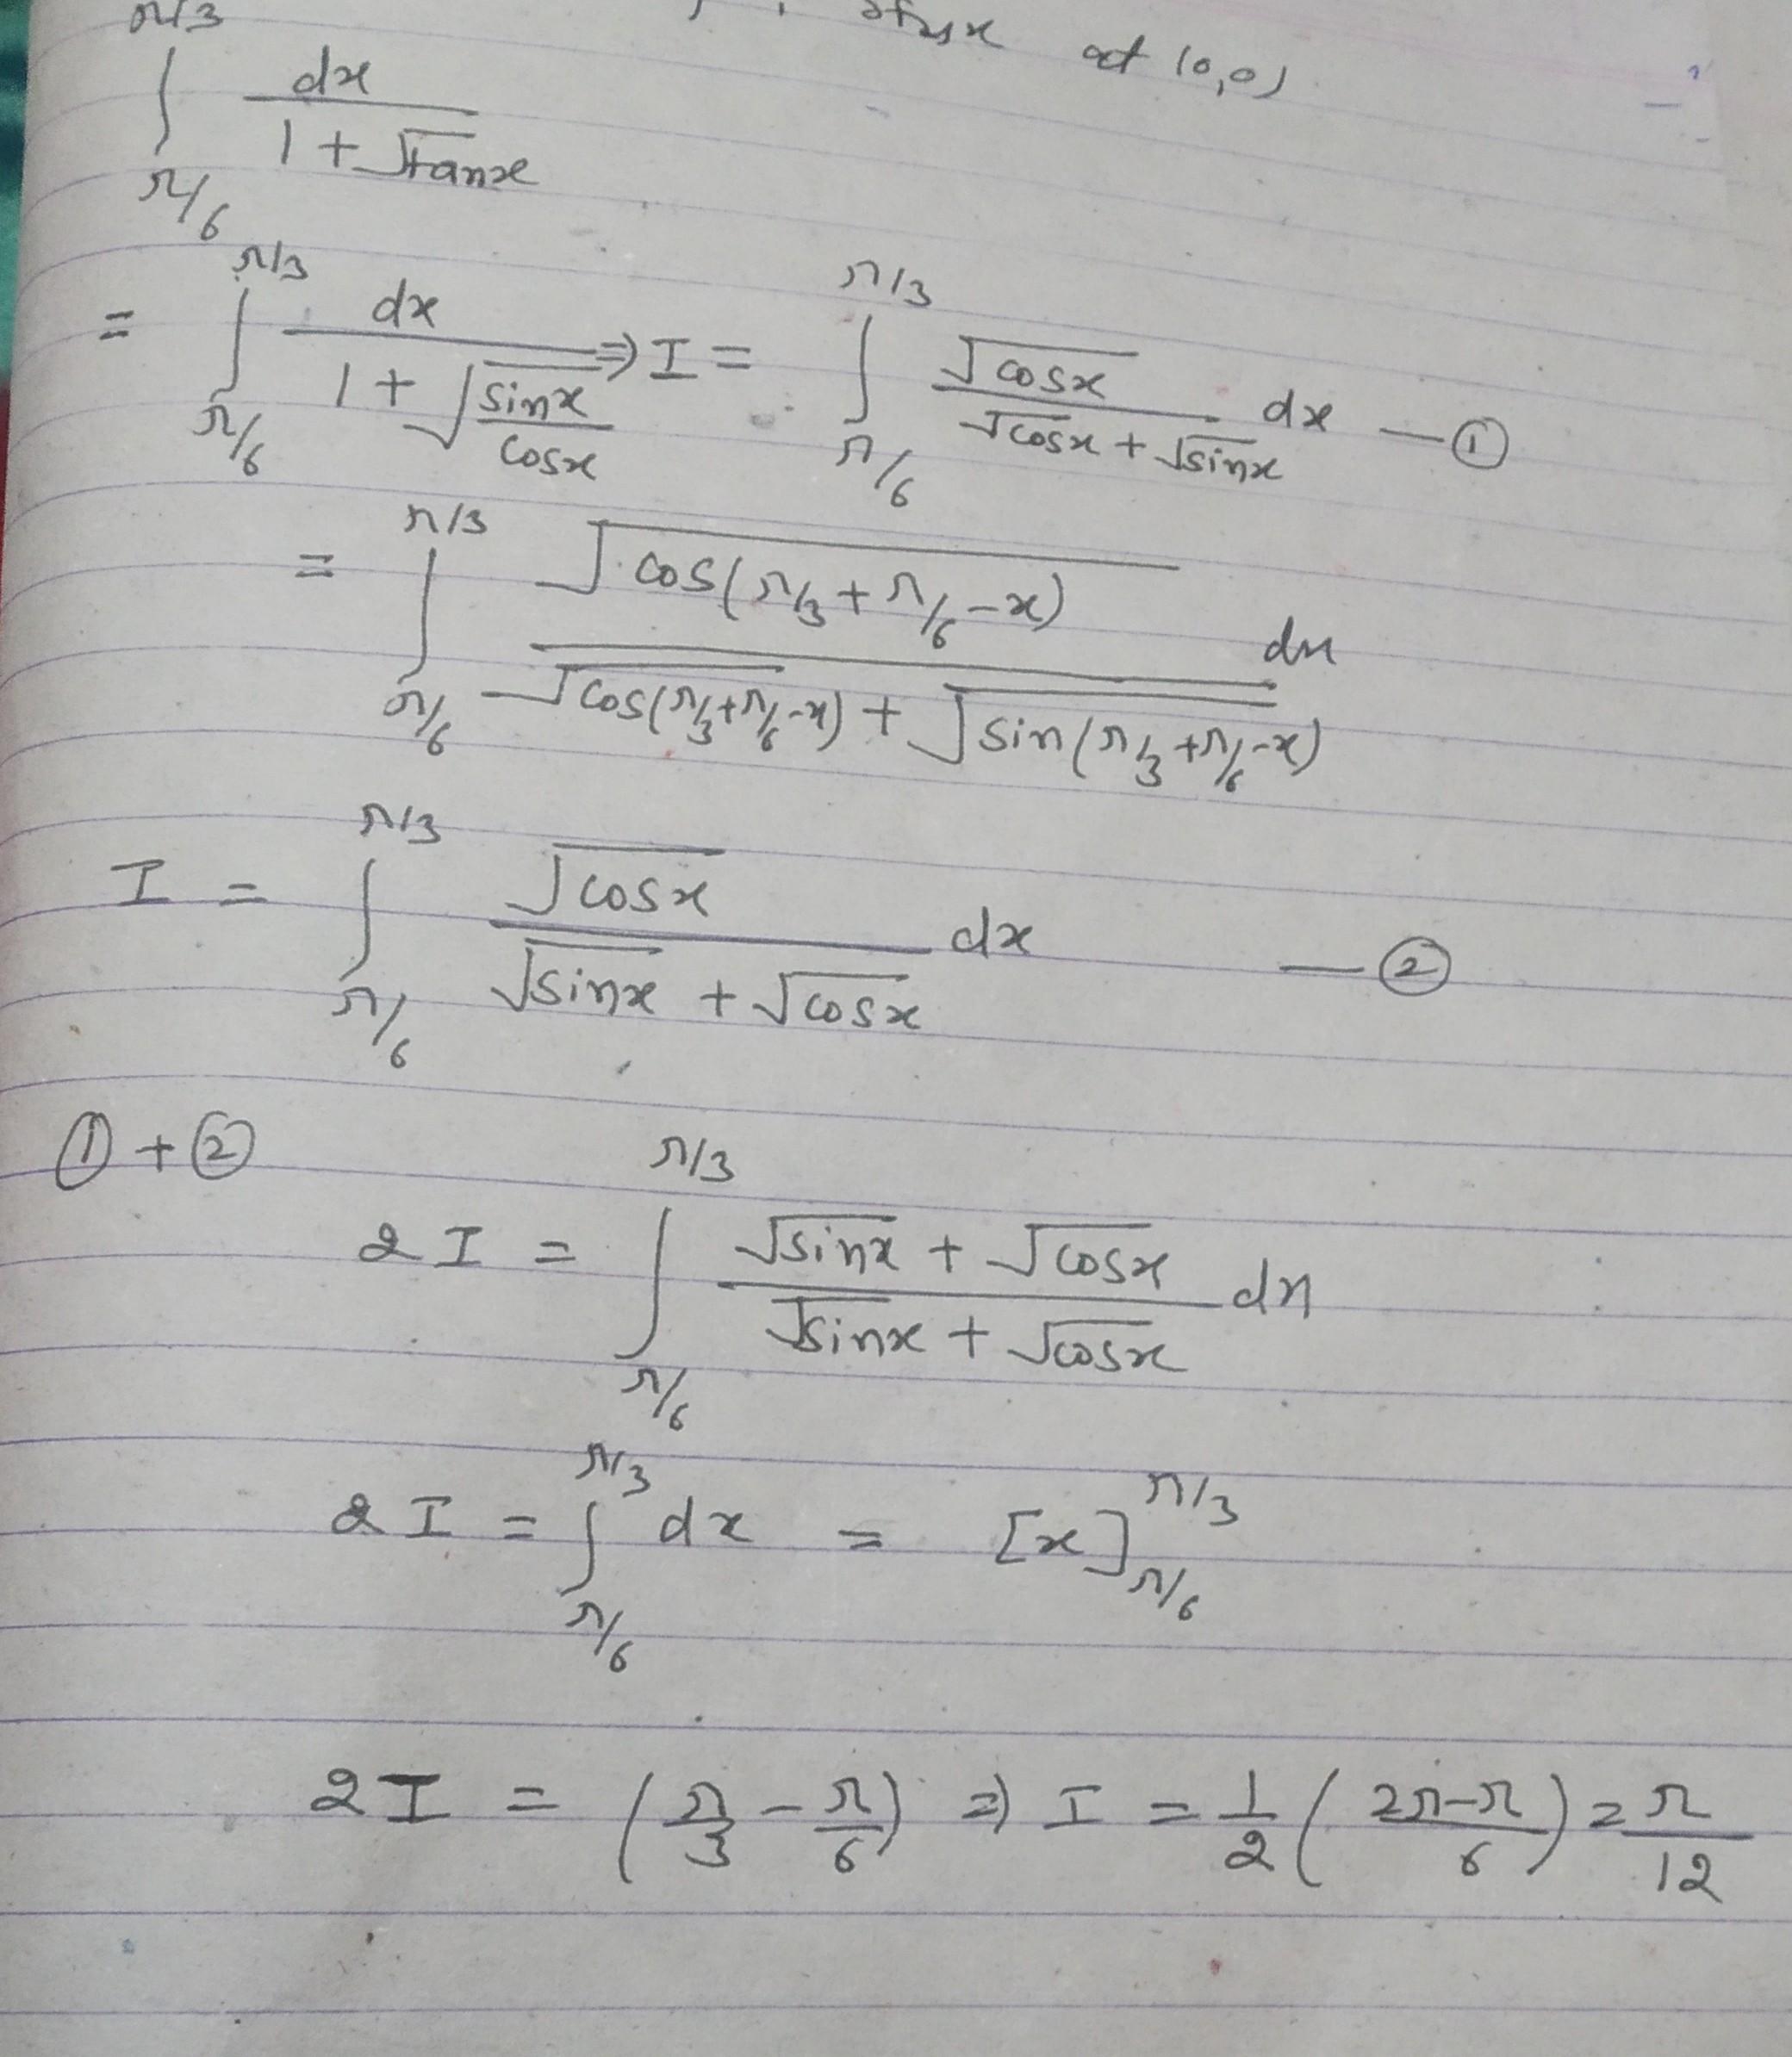 at (0,0)
∫_{π/6}^{π/3} dx / (1 + √tanx)
= ∫_{π/6}^{π/3} dx / (1 + √(sinx/cosx)) ⇒ I = ∫_{π/6}^{π/3} √cosx / (√cosx + √sinx) dx — ①
= ∫_{π/6}^{π/3} √cos(π/3 + π/6 - x) / (√cos(π/3 + π/6 - x) + √sin(π/3 + π/6 - x)) dx
I = ∫_{π/6}^{π/3} √cosx / (√sinx + √cosx) dx — ②
① + ②
2I = ∫_{π/6}^{π/3} (√sinx + √cosx) / (√sinx + √cosx) dx
2I = ∫_{π/6}^{π/3} dx = [x]_{π/6}^{π/3}
2I = (π/3 - π/6) ⇒ I = 1/2 (2π-π / 6) = π/12